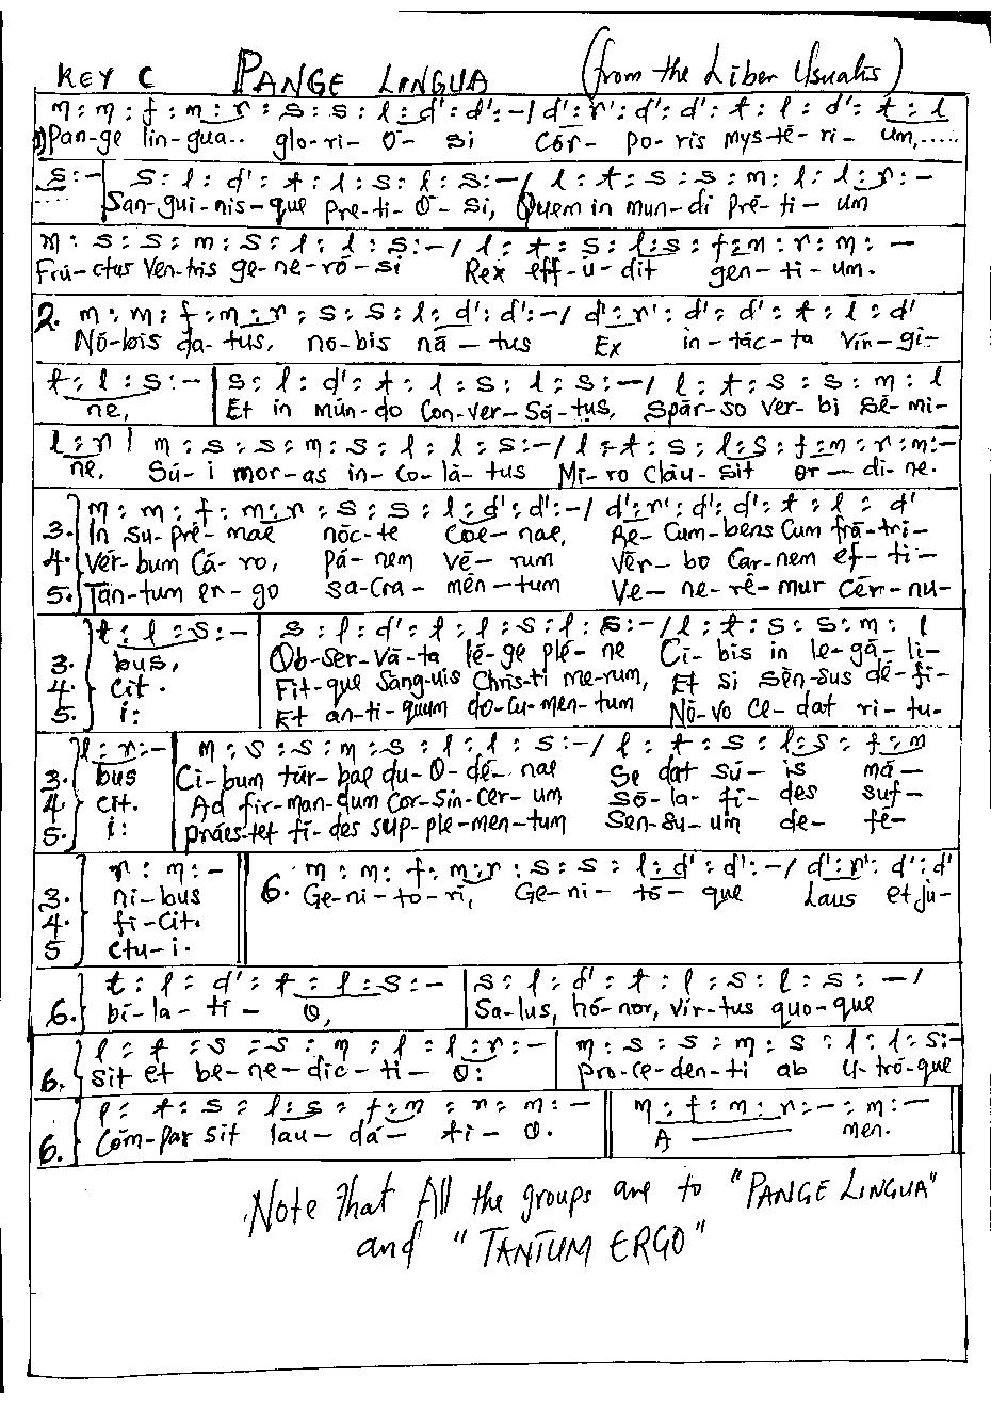 KEY C PANGE LINGUA (from the Liber Usualis)
m : m : f : m : r : s : s : l : d' : d' :-/ d' : r' : d' : d' : t : l : d' : t : l
1) Pan-ge lin-gua.. glo-ri- O- si Cór- po-ris mys-té- ri- um,.....
s :- | s : l : d' : t : l : s : l : s :-/ l : t : s : s : m : l : l : r :-
San-gui-nis-que pre-ti-O-si, Quem in mun-di pré-ti-um
m : s : s : m : s : l : l : s :-/ l : t : s : l : s : f : m : r : m : -
Frú-ctus ven-tris ge-ne-ró-si Rex eff-ú-dit gen-ti-um.
2. m : m : f : m : r : s : s : l : d' : d' :-/ d' : r' : d' : d' : t : l : d'
Nó-bis da-tus, no-bis nā-tus Ex in-tác-ta Vín-gi-
t : l : s :- | s : l : d' : t : l : s : l : s :-/ l : t : s : s : m : l
ne, Et in mún-do Con-ver-Sá-tus, Spār-so ver-bi Sé-mi-
l : r | m : s : s : m : s : l : l : s :-/ l : t : s : l : s : f : m : r : m :-
ne. Sú-i mor-as in-co-lā-tus Mi-ro Clāu-sit or-di-ne.
m : m : f : m : r : s : s : l : d' : d' :-/ d' : r' : d' : d' : t : l : d'
3. In su-pré-mae nóc-te Coe-nae, Re-Cum-bens Cum frā-tri-
4. Vér-bum Cá-ro, Pá-nem vé-rum Vér-bo Car-nem ef-ti-
5. Tān-tum er-go sa-cra-mén-tum Ve-ne-ré-mur Cér-nu-
t : l : s :- | s : l : d' : t : l : s : l : s :-/ l : t : s : s : m : l
3. bus, Ob-Ser-vā-ta lé-ge plé-ne Cí-bis in le-gā-li-
4. Cit. Fit-que Sang-uis Chris-ti me-rum, Et si Sén-sus dé-fi-
5. i: Et an-ti-quum do-cu-men-tum Nō-vo Ce-dat ri-tu-
l : r :- | m : s : s : m : s : l : l : s :-/ l : t : s : l : s : f : m
3. bus Ci-bum túr-bae du-O-dé-nae Se dat sú-is má-
4 cit. Ad fir-man-dum Cor-Sin-cer-um Só-la fi-des suf-
5. i: práes-tet fi-des sup-ple-men-tum Sen-su-um de-fé-
r : m :- 6. m : m : f : m : r : s : s : l : d' : d' :-/ d' : r' : d' : d'
3. ni-bus Ge-ni-to-ri, Ge-ni-tō-que Laus et jú-
4. fi-Cit.
5 ctu-i.
t : l : d' : t : l : s :- | s : l : d' : t : l : s : l : s : -/
6. bi-la-ti-O, Sa-lus, hó-nor, vir-tus quo-que
l : t : s : s : m : l : l : r :- | m : s : s : m : s : l : l : s :-
6. Sit et be-ne-dic-ti-O: Pro-ce-den-ti ab U-tró-que
l : t : s : l : s : f : m : r : m :- || m : f : m : r :- : m :-
6. Cóm-par sit lau-dá-ti-O. A men.
Note that All the groups are to "PANGE LINGUA"
and "TANTUM ERGO"